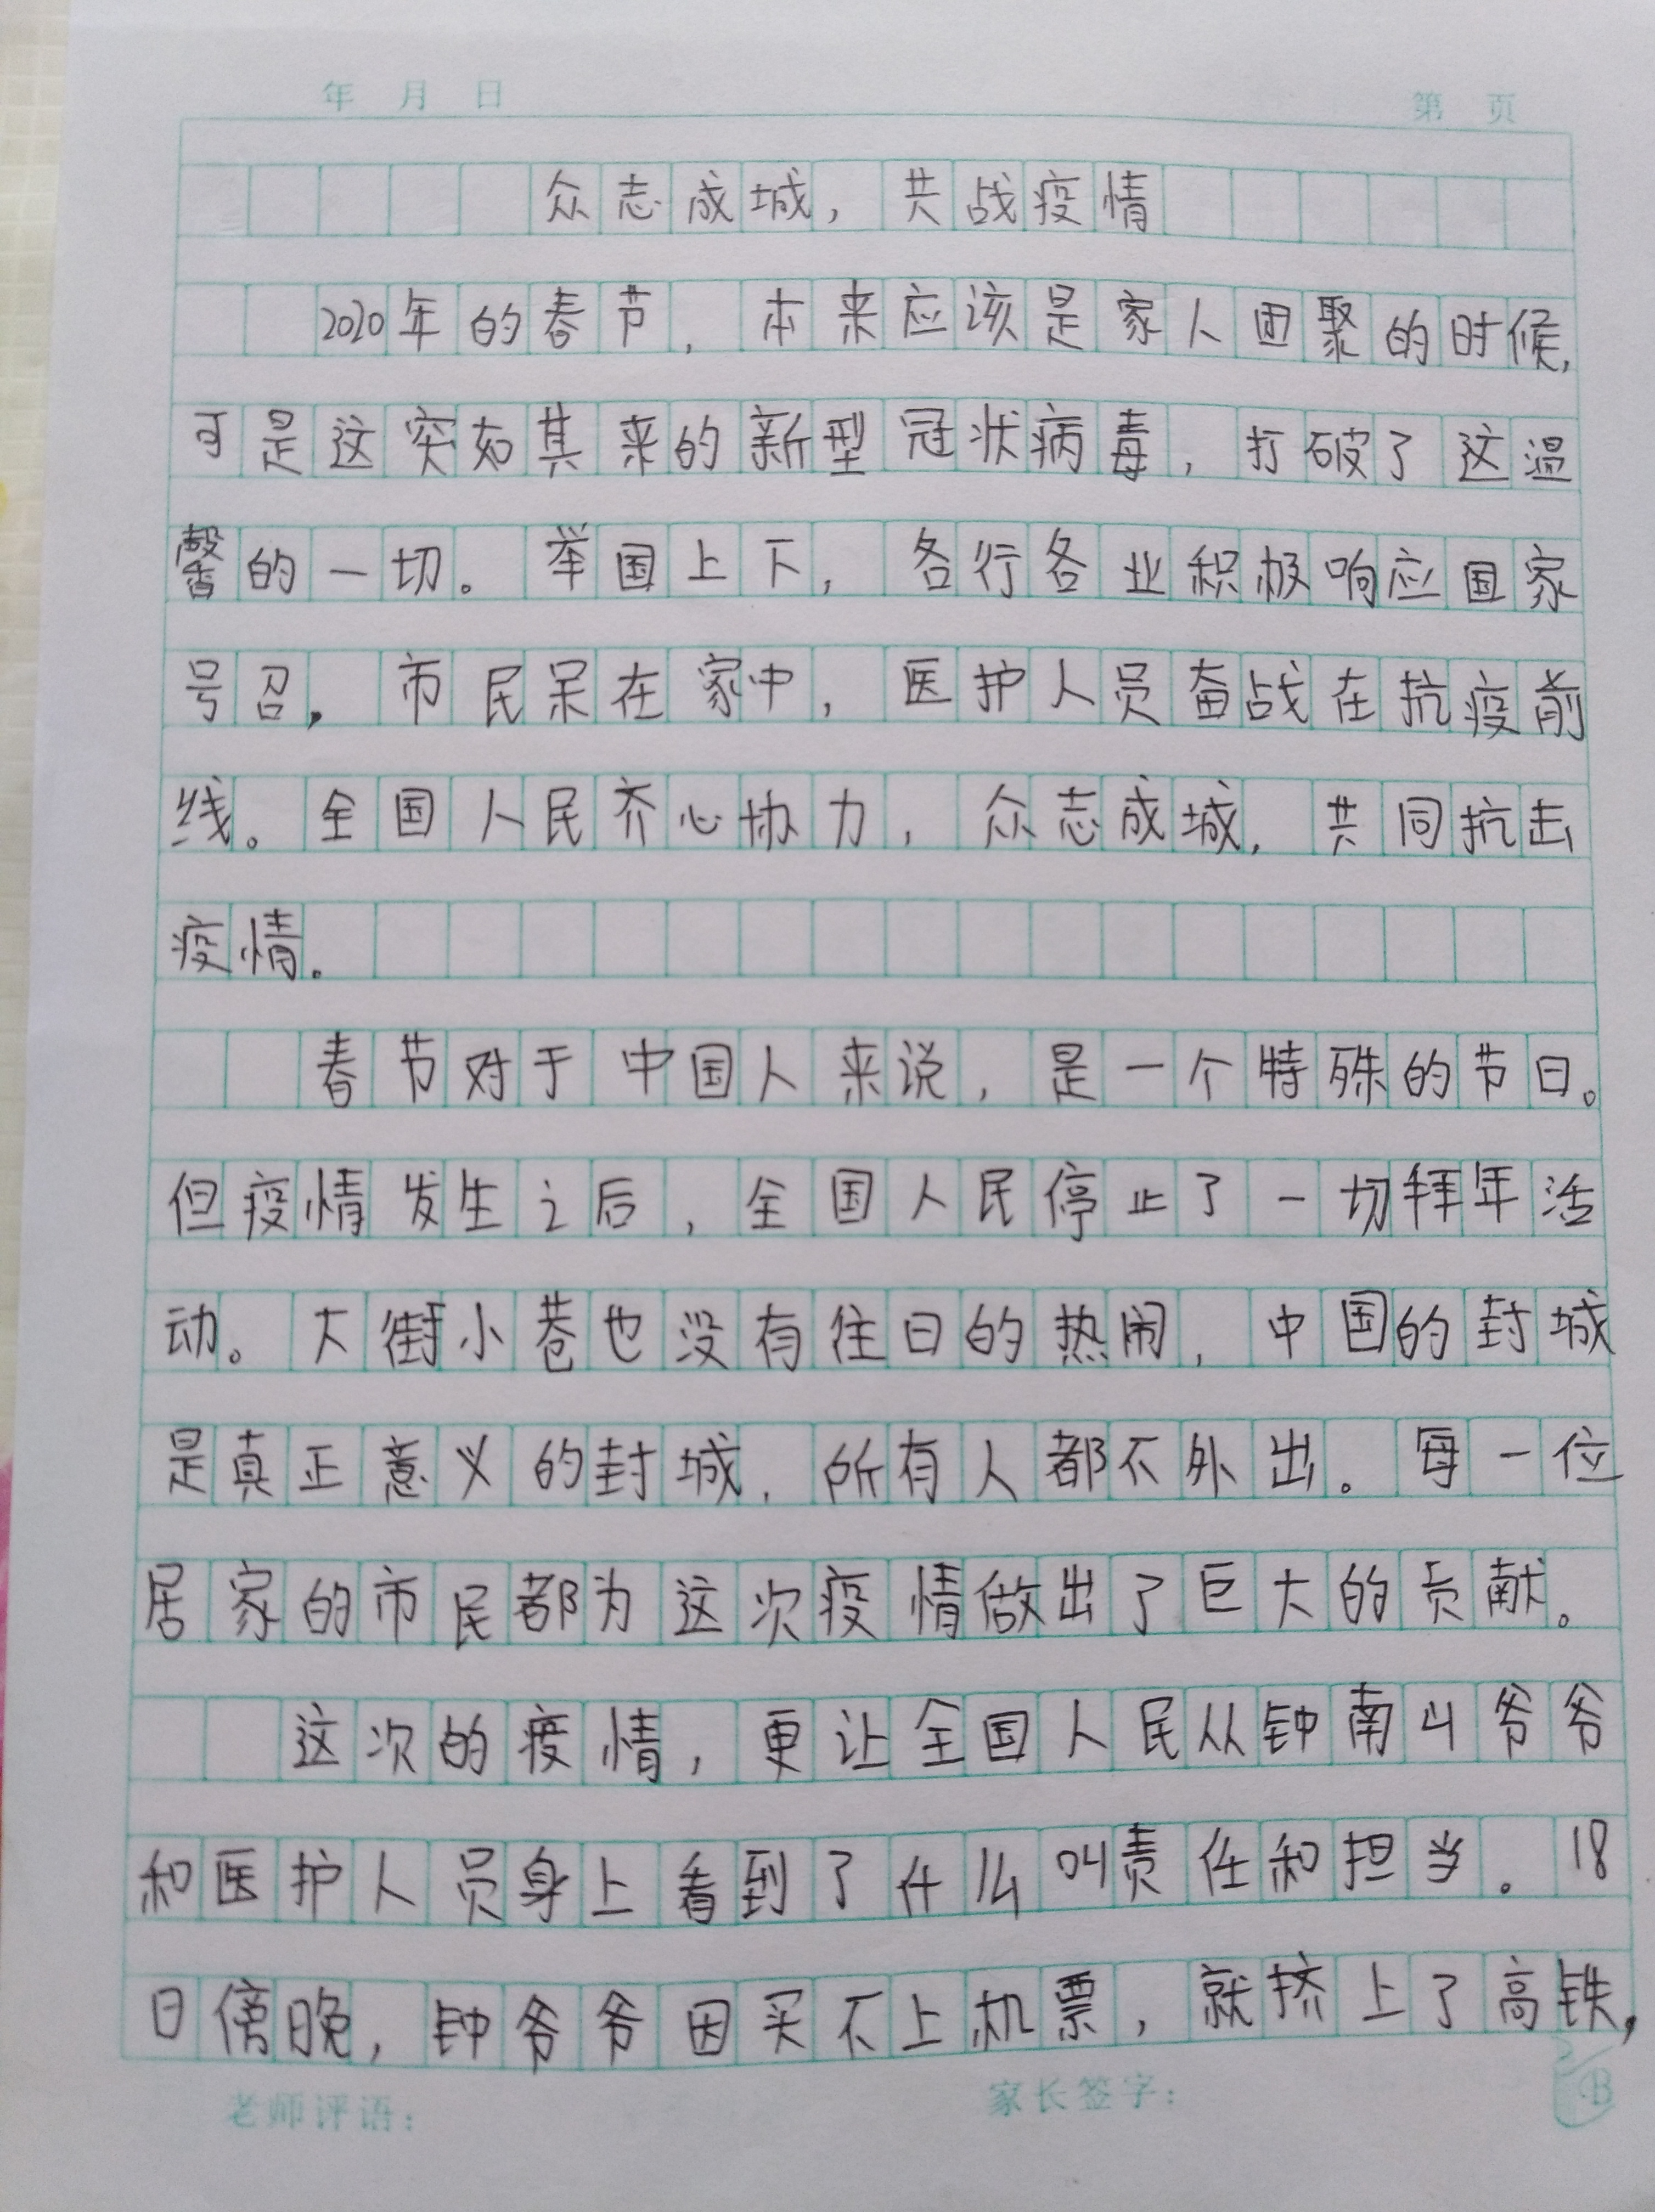 年 月 日 第 页
众志成城，共战疫情
2020年的春节，本来应该是家人团聚的时候，
可是这突如其来的新型冠状病毒，打破了这温
馨的一切。举国上下，各行各业积极响应国家
号召，市民呆在家中，医护人员奋战在抗疫前
线。全国人民齐心协力，众志成城，共同抗击
疫情。
春节对于中国人来说，是一个特殊的节日。
但疫情发生之后，全国人民停止了一切拜年活
动。大街小巷也没有往日的热闹，中国的封城
是真正意义的封城，所有人都不外出。每一位
居家的市民都为这次疫情做出了巨大的贡献。
这次的疫情，更让全国人民从钟南山爷爷
和医护人员身上看到了什么叫责任和担当。18
日傍晚，钟爷爷因买不上机票，就挤上了高铁，
老师评语： 家长签字：